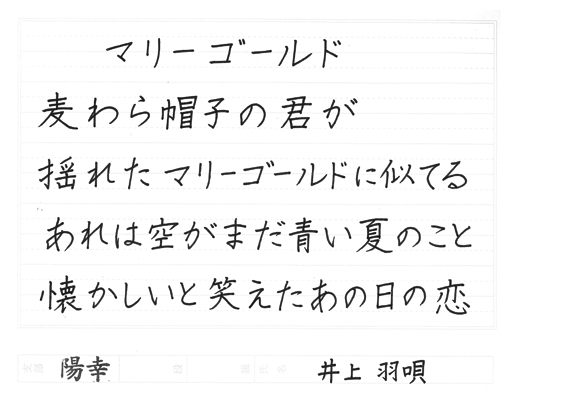 マリーゴールド
麦わら帽子の君が
揺れたマリーゴールドに似てる
あれは空がまだ青い夏のこと
懐かしいと笑えたあの日の恋
陽幸 井上 羽唄